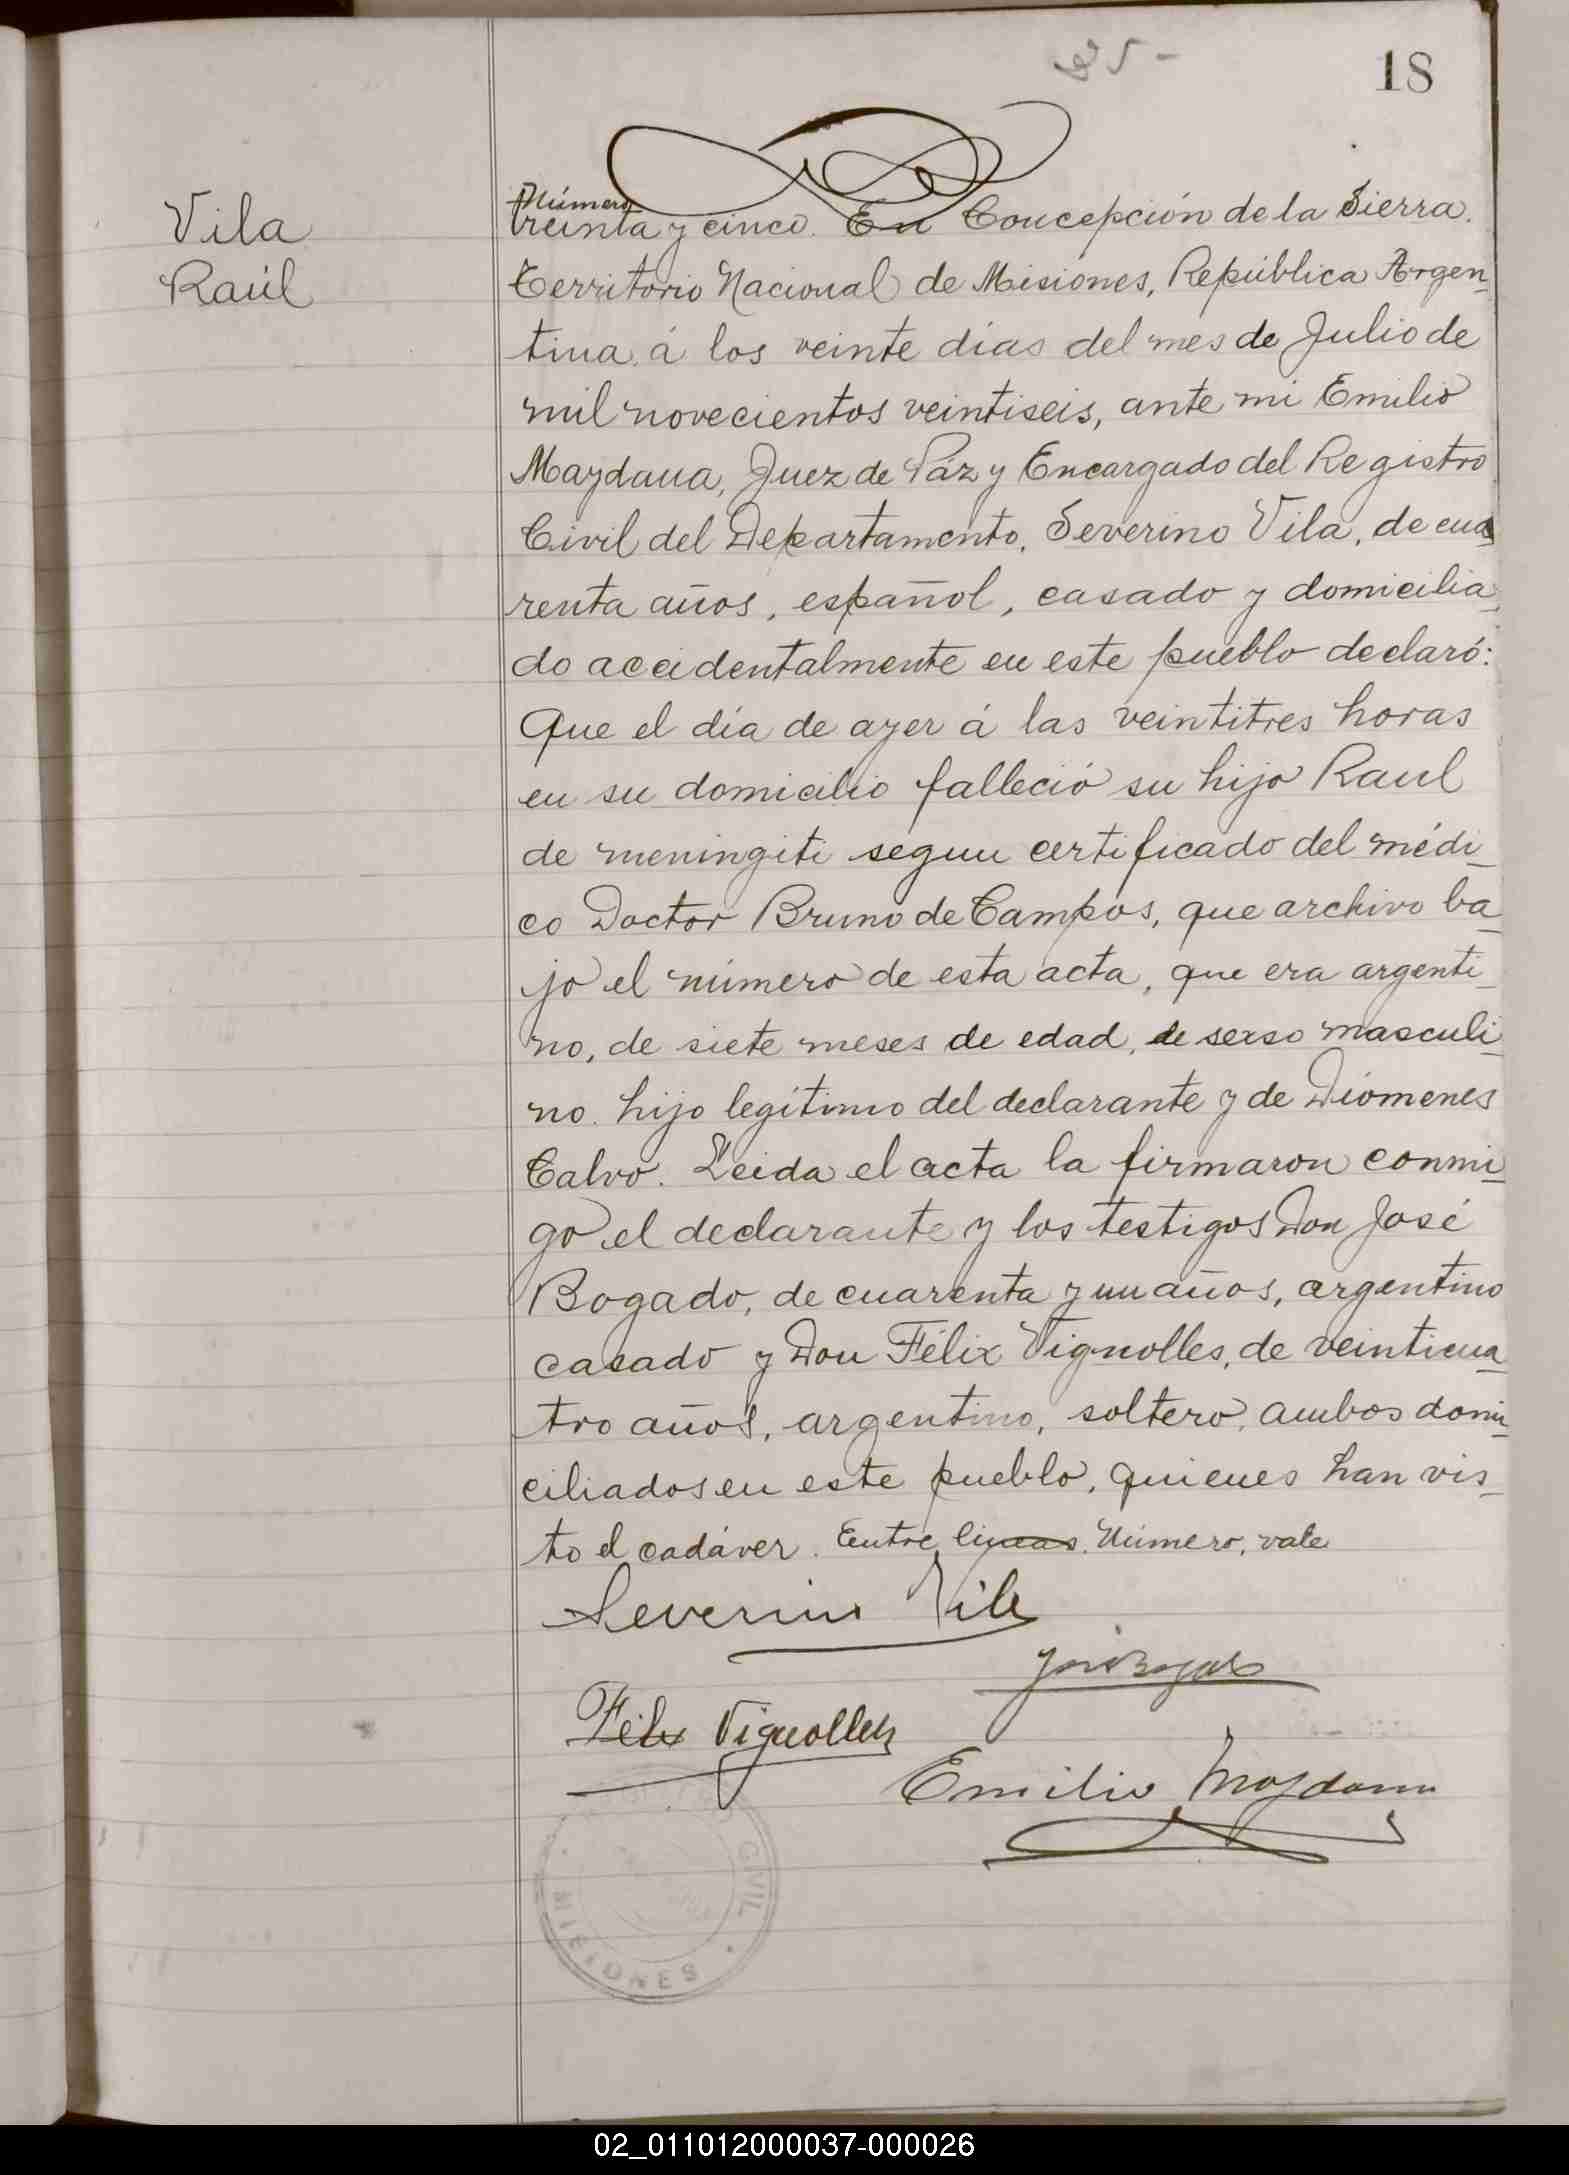 18
Vila
Raúl
Número
treinta y cinco. En Concepción de la Sierra.
Territorio Nacional de Misiones, República Argen_
tina á los veinte días del mes de Julio de
mil novecientos veintiseis, ante mi Emilio
Maydana, Juez de Páz y Encargado del Registro
Civil del Departamento, Severino Vila, de cua
renta años, español, casado y domicilia_
do accidentalmente en este pueblo declaró:
Que el día de ayer á las veintitres horas
en su domicilio falleció su hijo Raul
de meningiti segun certificado del médi_
co Doctor Bruno de Campos, que archivo ba_
jo el número de esta acta, que era argenti_
no, de siete meses de edad, de sexso masculi_
no. hijo legítimo del declarante y de Diómenes
Calvo. Leida el acta la firmaron conmi_
go el declarante y los testigos Don José
Bogado, de cuarenta y un años, argentino
casado y Don Félix Vignolles, de veinticua_
tro años, argentino, soltero, ambos domi_
ciliados en este pueblo, quienes han vis_
to el cadáver. Entre lineas. Número, vale
Severino Vila
José Bogado
Félix Vignolles
Emilio Maydana
CIVIL
MISIONES
02_011012000037-000026